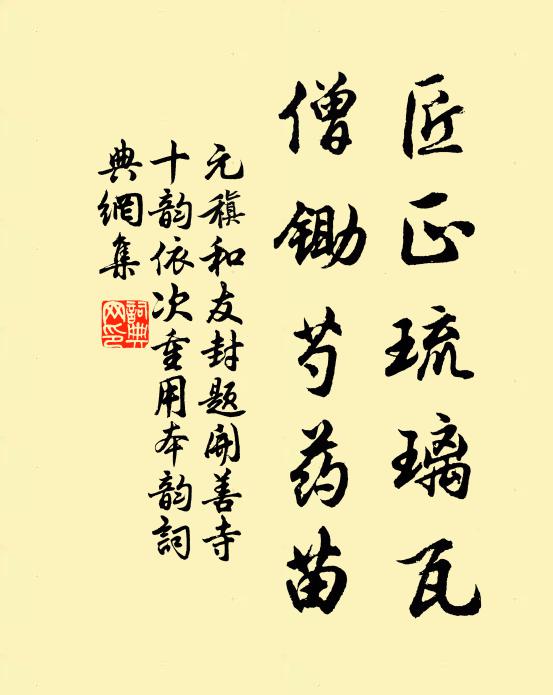 匠正琉璃瓦
僧锄芍药苗
元稹和友封题开善寺
十韵依次重用本韵詞
典網集
詞典
网印